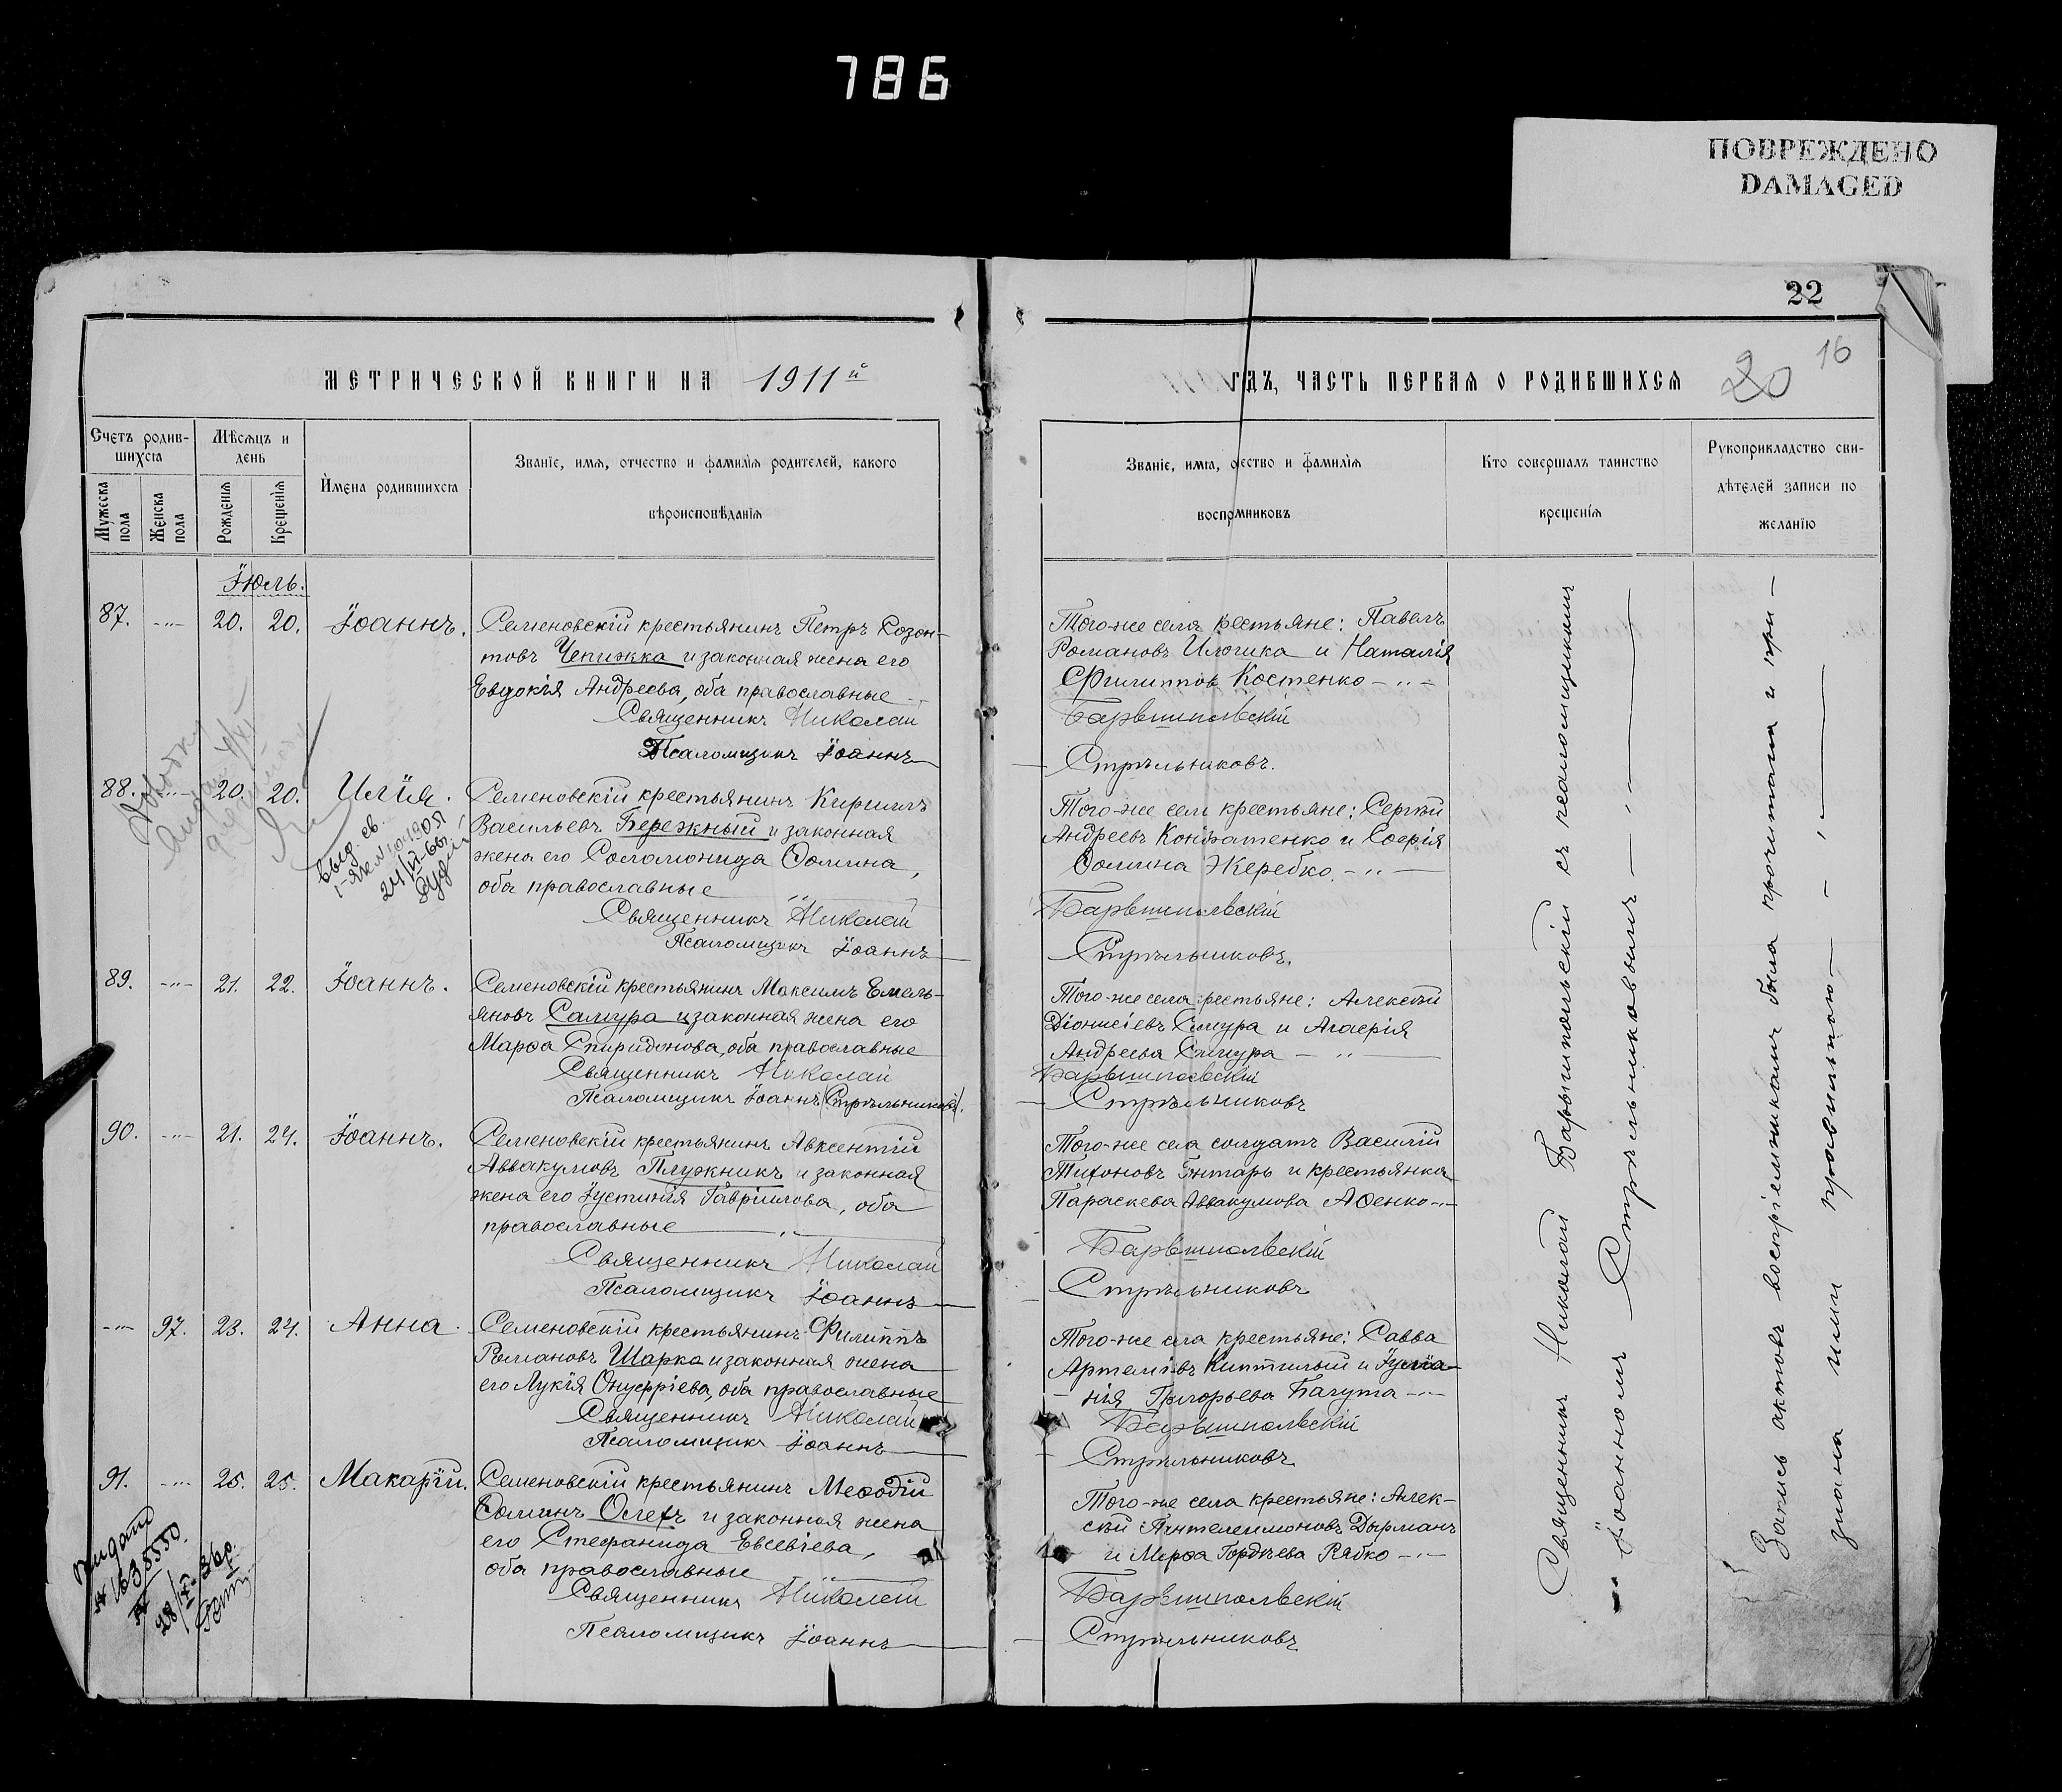 786
ПОВРЕЖДЕНО
DAMAGED
22
20
16
МЕТРИЧЕСКОЙ КНИГИ НА 1911й
ГДЪ, ЧАСТЬ ПЕРВАЯ О РОДИВШИХСЯ
Счетъ родив-
шихся
Мѣсяцъ и
день
Мужеска
пола
Женска
пола
Рожденія
Крещенія
Имена родившихся
Званіе, имя, отчество и фамилія родителей, какого
вѣроисповѣданія
Званіе, имя, оество и фамилія
воспрмниковъ
Кто совершалъ таинство
крещенія
Рукоприкладство сви-
дѣтелей записи по
желанію
Іюль.
87. -"- 20. 20. Іоаннъ. Семеновскій крестьянинъ Петръ Созон-
товъ Чепижка и законная жена его
Евдокія Андреева, оба православные
Священникъ Николай
Псаломщикъ Іоаннъ
Того-же села рестьяне: Павелъ
Романовъ и Наталія
Филиппов Костенко -"-
Барвшпольскій
Стрѣльниковъ.
88. -"- 20. 20. Илія. Семеновскій крестьянинъ Кириллъ
Васильевъ Бережный и законная
жена его Соломонида Ѳомина,
оба православные
Священникъ Николай
Псаломщикъ Іоаннъ
выд. св.
24/II-66
Того-же села крестьяне: Сергѣй
Андреевъ Кондратенко и Софія
Ѳомина Жеребко -"-
Барвшпольскій
Стрѣльниковъ.
89. -"- 21. 22. Іоаннъ. Семеновскій крестьянинъ Максимъ Емель-
яновъ Самура и законная жена его
Марѳа Спиридонова, оба православные
Священникъ Николай
Псаломщикъ Іоаннъ (Стрѣльниковъ).
Того-же села рестьяне: Алексѣй
Діонисіевъ Самура и Агаѳія
Андреева Самура -"-
Барвшпольскій
Стрѣльниковъ
90. -"- 21. 24. Іоаннъ. Семеновскій крестьянинъ Авксентій
Аввакумовъ Плужникъ и законная
жена его Іустинія Гавріилова, оба
православные
Священникъ Николай
Псаломщикъ Іоаннъ
Того-же села солдатъ Василій
Тихоновъ и крестьянка
Параскева Аввакумова Аѳенко -"-
Барвшпольскій
Стрѣльниковъ
-"- 97. 23. 24. Анна. Семеновскій крестьянинъ Филиппъ
Романовъ Шарко и законная жена
его Лукія Онуфріева, оба православные
Священникъ Николай
Псаломщикъ Іоаннъ
Того-же села крестьяне: Савва
Артемовъ и Іуліа-
нія Григорьева Бачута -"-
Барвшпольскій
Стрѣльниковъ
91. -"- 25. 25. Макарій. Семеновскій крестьянинъ Меѳодій
Ѳоминъ и законная жена
его Стефанида Евсевіева,
оба православные
Священникъ Николай
Псаломщикъ Іоаннъ
Того-же села крестьяне: Алек-
сѣй Пантелеимоновъ Дырманъ
и Марѳа Гордѣева Рябко -"-
Барвшпольскій
Стрѣльниковъ
Священникъ Николай Барышпольскій съ псаломщикомъ
Іоанномъ Стрѣльниковымъ
Запись актовъ воспріемникамъ была прочитана и при-
знана ими правильною